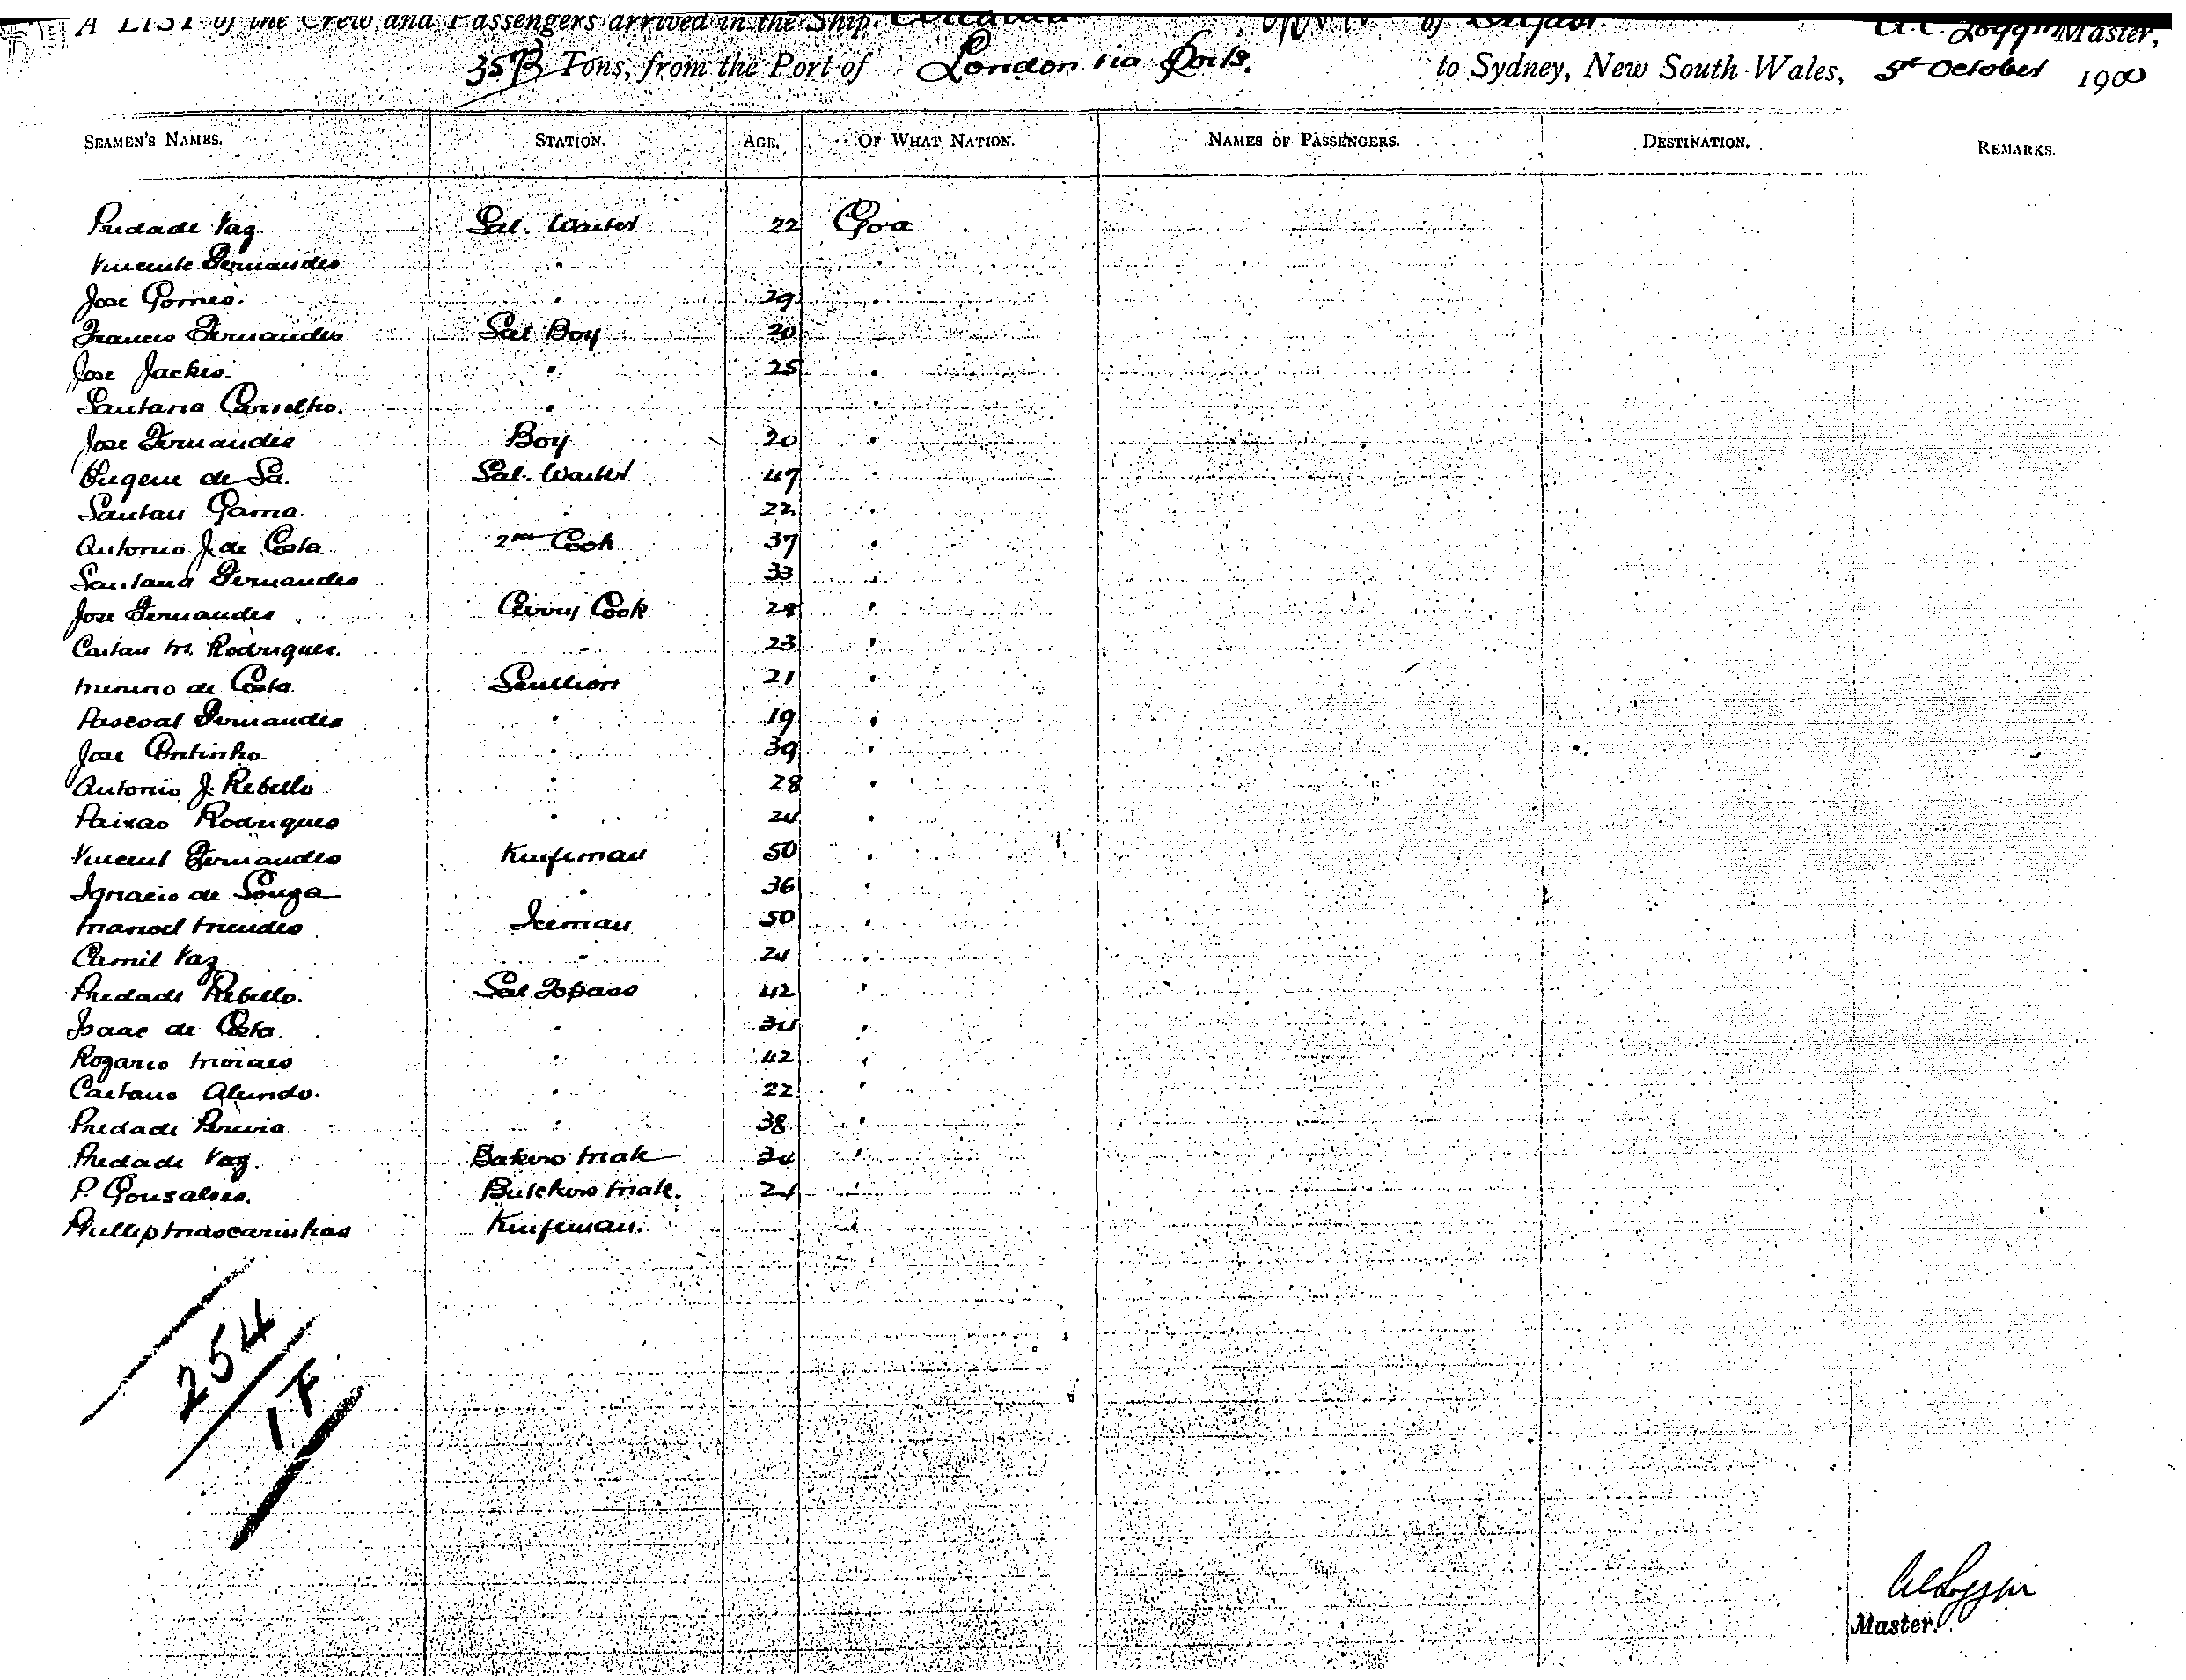 A LIST of the Crew and Passengers arrived in the Ship of Belfast. A.C. Loggin Master,
Tons, from the Port of London via Ports. to Sydney, New South Wales, 5th October 1900
SEAMEN'S NAMES. STATION. AGE. OF WHAT NATION. NAMES OF PASSENGERS. DESTINATION. REMARKS.
Piedade Vaz Sal. Waiter 22 Goa
Vincente Fernandes " "
Jose Gomes. " 29 "
Francis Fernandes Sal Boy 20 "
Jose Jackis. " 25 "
Santana Carvelho. " "
Jose Fernandes Boy 20 "
Eugene de Sa. Sal. Waiter 47 "
Santan Gama " 22 "
Antonio J. de Costa 2nd Cook 37 "
Santana Fernandes " 33 "
Jose Fernandes Curry Cook 28 "
Caitan M. Rodriques. " 23 "
Minino de Costa Scullion 21 "
Pascoal Fernandes " 19 "
Jose Continho. " 39 "
Antonio J. Rebello " 28 "
Paixao Rodrigues " 24 "
Vincent Fernandes Knifeman 50 "
Ignacio de Souza " 36 "
Manoel Mendes Iceman 50 "
Camil Vaz " 24 "
Piedade Rebello. Sal Topass 42 "
Isaac de Costa. " 34 "
Rozario Moraes " 42 "
Caetano " 22 "
Piedade Pereira " 38 "
Piedade Vaz. Bakers Mate 34 "
P. Gonsalves. Butchers Mate. 24 "
Phillip Mascarinhas Knifeman. "
254
1F
ACLoggin
Master.